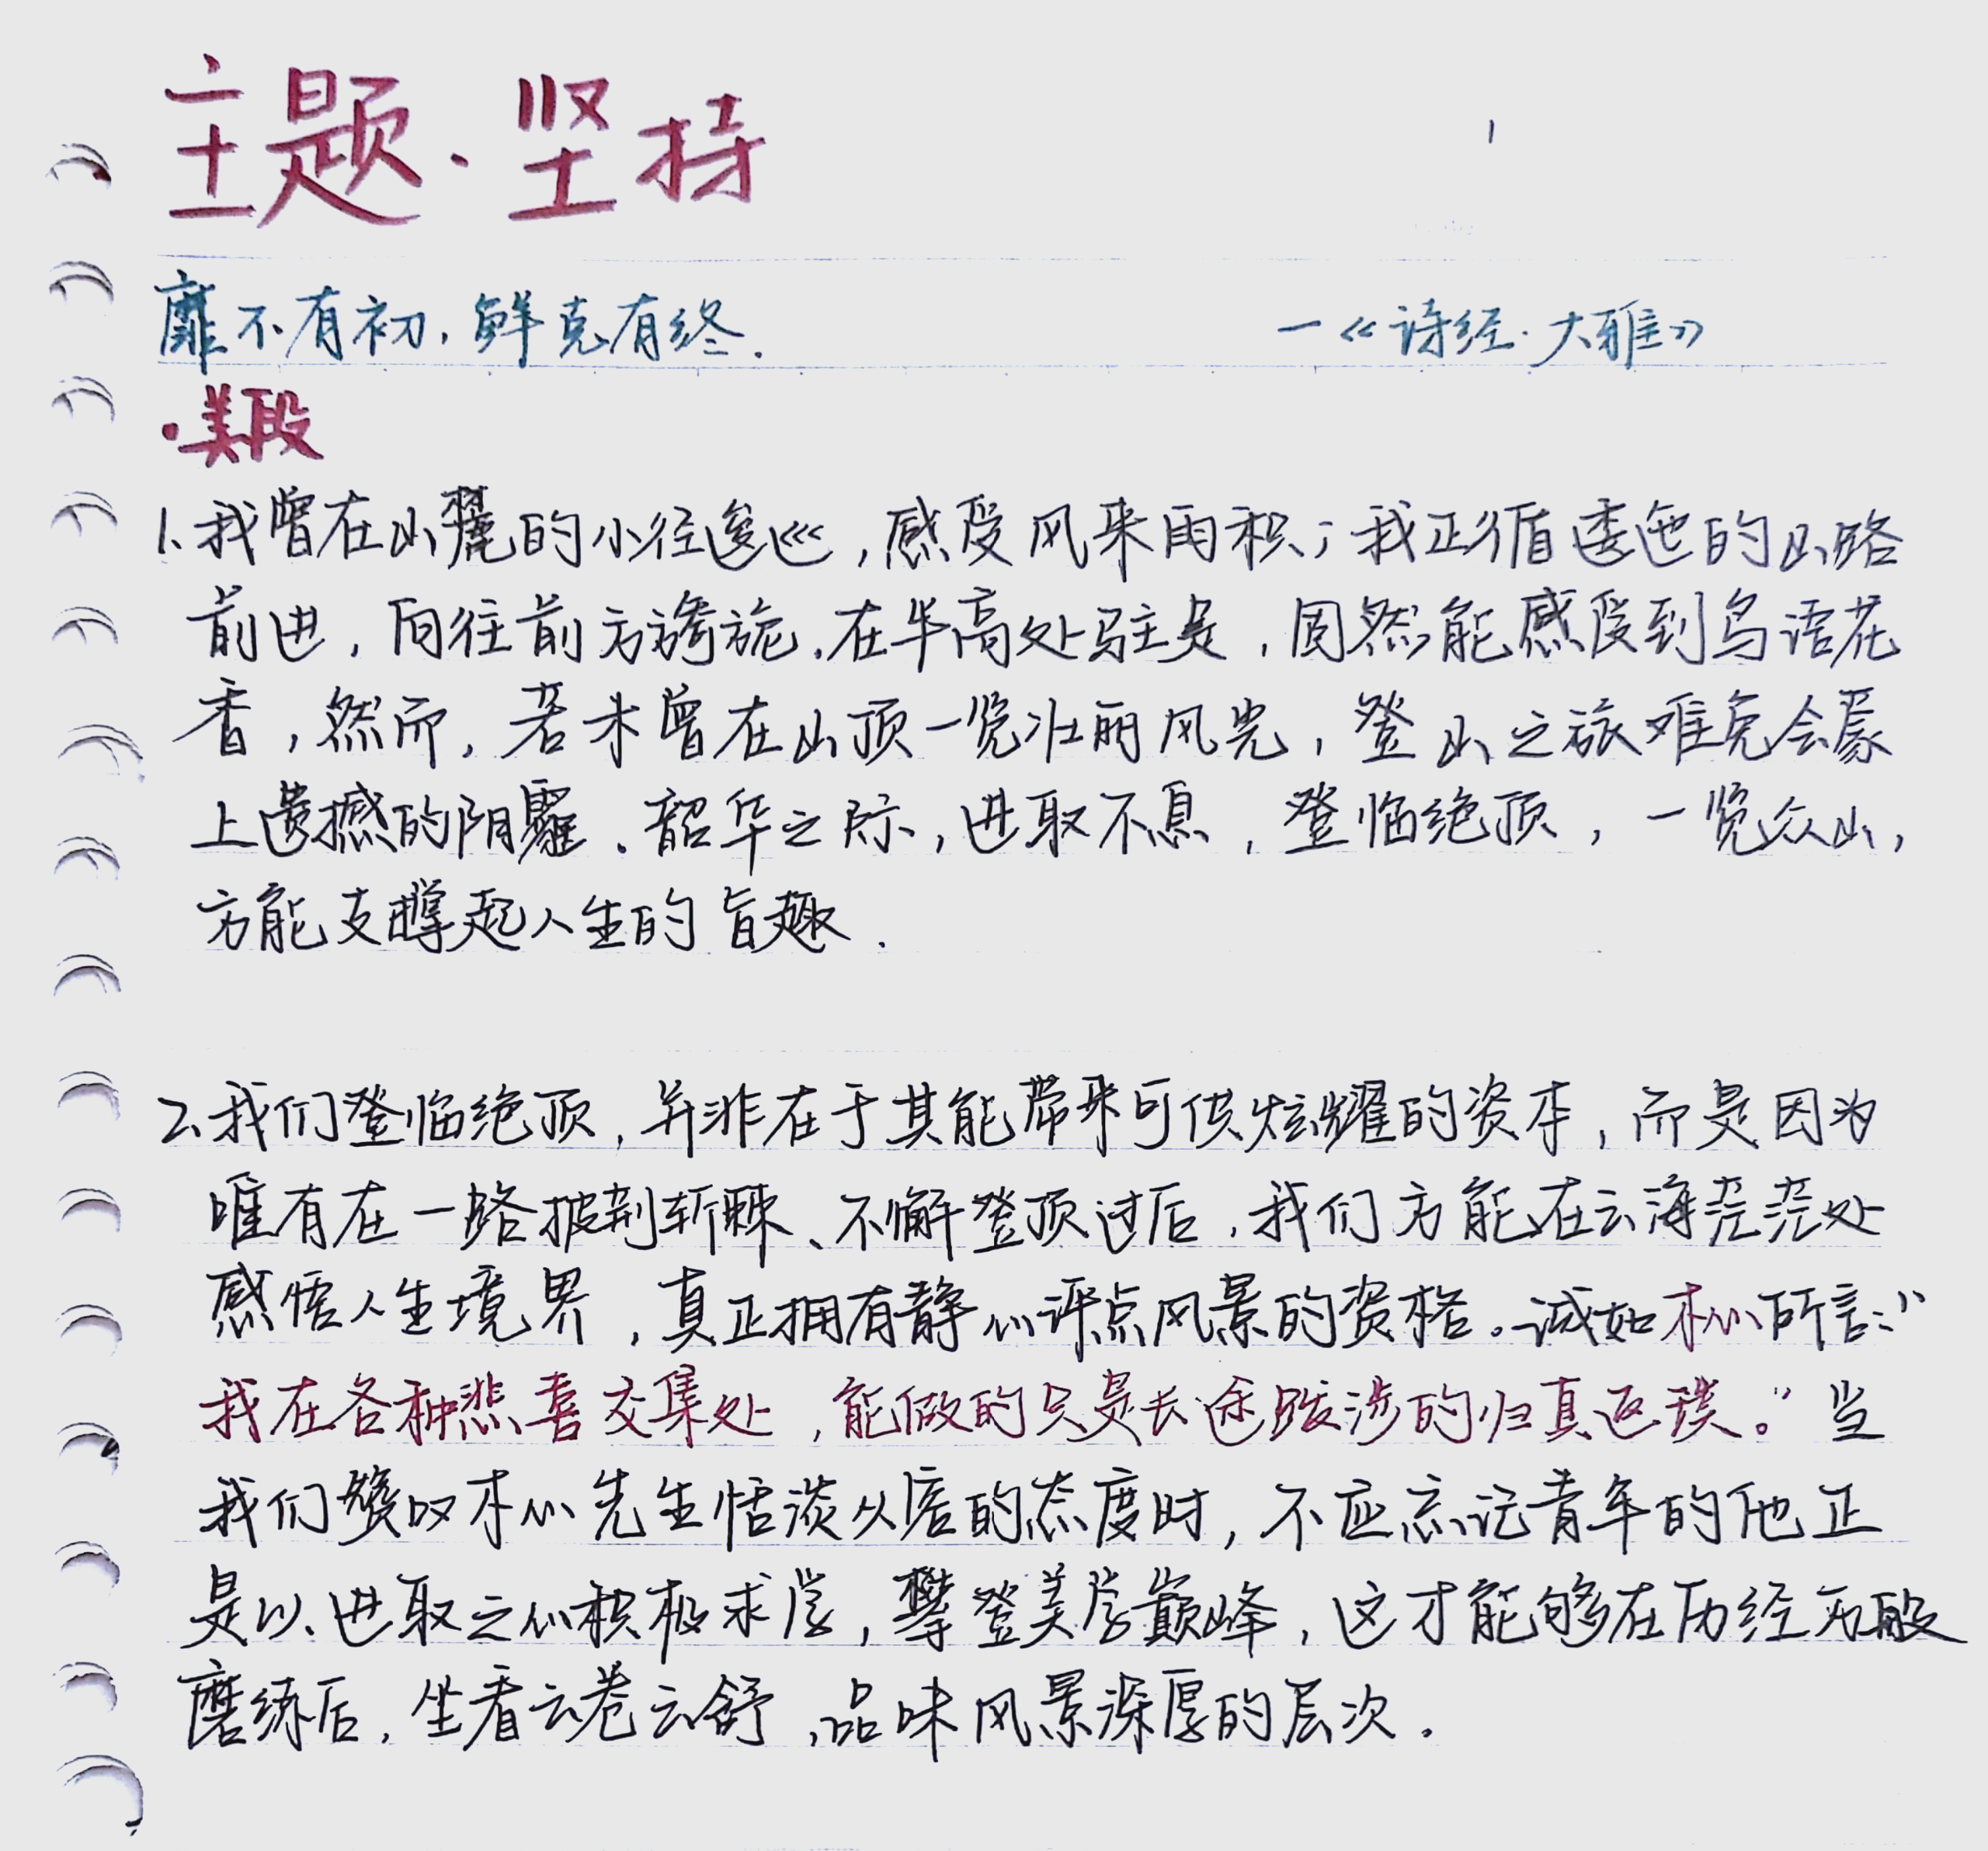 主题·坚持
靡不有初，鲜克有终.
—《诗经·大雅》
·美段
1.我曾在山麓的小径逡巡，感受风来雨积；我正循逶迤的山路
前进，向往前方旖旎.在半高处驻足，固然能感受到鸟语花
香，然而，若未曾在山顶一览壮丽风光，登山之旅难免会蒙
上遗憾的阴霾.韶华之际，进取不息，登临绝顶，一览众山，
方能支撑起人生的旨趣.
2.我们登临绝顶，并非在于其能带来可供炫耀的资本，而是因为
唯有在一路披荆斩棘、不懈登顶过后，我们方能在云海茫茫处
感悟人生境界，真正拥有静心评点风景的资格。诚如木心所言：“
我在各种悲喜交集处，能做的只是长途跋涉的归真返璞。”当
我们赞叹木心先生恬淡从容的态度时，不应忘记青年的他正
是以进取之心积极求学，攀登美学巅峰，这才能够在历经万般
磨练后，坐看云卷云舒，品味风景深厚的层次.